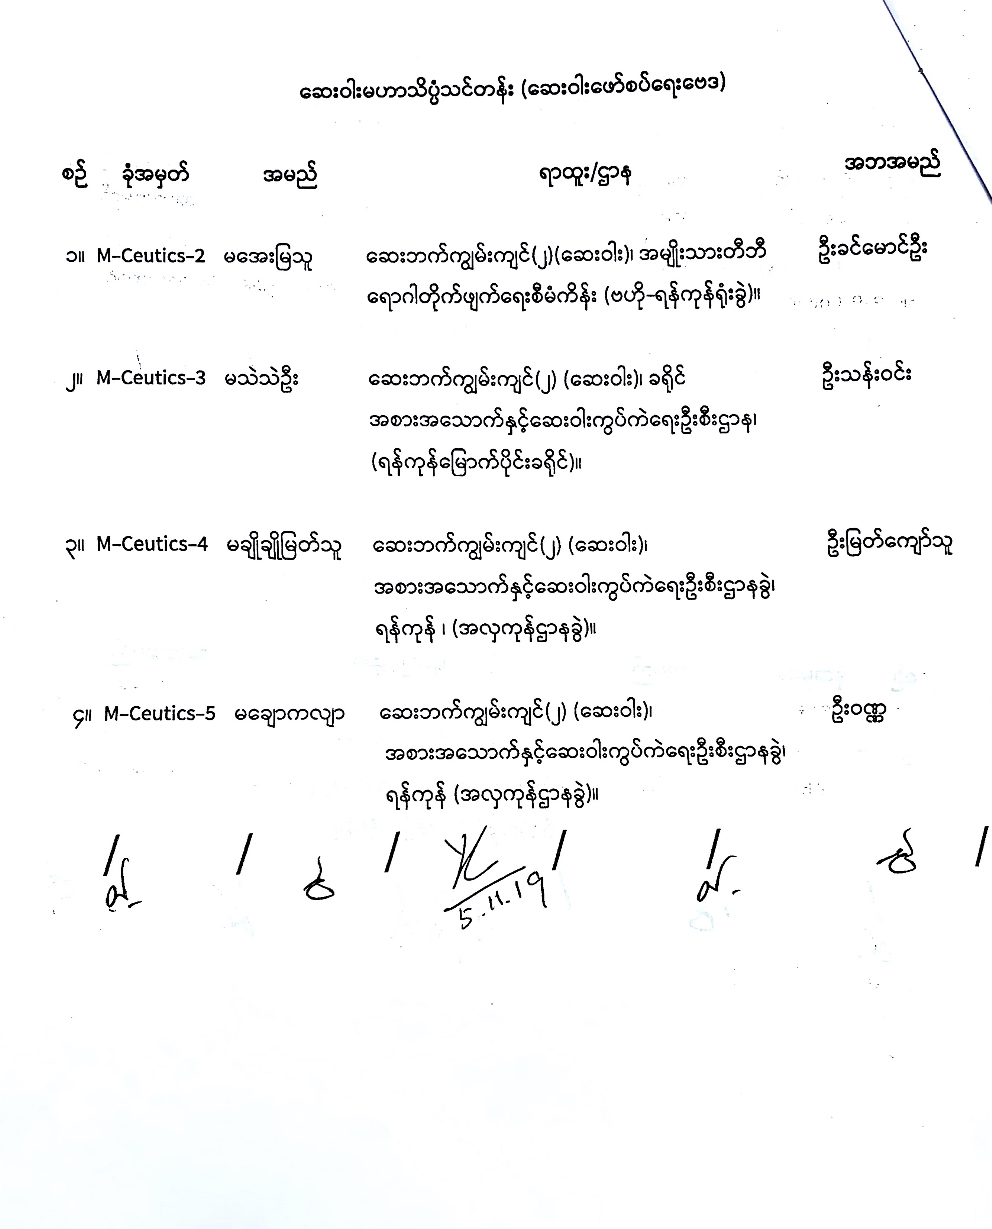 ဆေးဝါးမဟာသိပ္ပံသင်တန်း (ဆေးဝါးဖော်စပ်ရေးဗေဒ)
စဉ် ခုံအမှတ် အမည် ရာထူး/ဌာန အဘအမည်
၁။ M-Ceutics-2 မအေးမြသူ ဆေးဘက်ကျွမ်းကျင်(၂)(ဆေးဝါး)၊ အမျိုးသားတီဘီ ဦးခင်မောင်ဦး
ရောဂါတိုက်ဖျက်ရေးစီမံကိန်း (ဗဟို-ရန်ကုန်ရုံးခွဲ)။
၂။ M-Ceutics-3 မသဲသဲဦး ဆေးဘက်ကျွမ်းကျင်(၂) (ဆေးဝါး)၊ ခရိုင် ဦးသန်းဝင်း
အစားအသောက်နှင့်ဆေးဝါးကွပ်ကဲရေးဦးစီးဌာန၊
(ရန်ကုန်မြောက်ပိုင်းခရိုင်)။
၃။ M-Ceutics-4 မချိုချိုမြတ်သူ ဆေးဘက်ကျွမ်းကျင်(၂) (ဆေးဝါး)၊ ဦးမြတ်ကျော်သူ
အစားအသောက်နှင့်ဆေးဝါးကွပ်ကဲရေးဦးစီးဌာနခွဲ၊
ရန်ကုန် ၊ (အလှကုန်ဌာနခွဲ)။
၄။ M-Ceutics-5 မချောကလျာ ဆေးဘက်ကျွမ်းကျင်(၂) (ဆေးဝါး)၊ ဦးဝဏ္ဏ
အစားအသောက်နှင့်ဆေးဝါးကွပ်ကဲရေးဦးစီးဌာနခွဲ၊
ရန်ကုန် (အလှကုန်ဌာနခွဲ)။
5.11.19